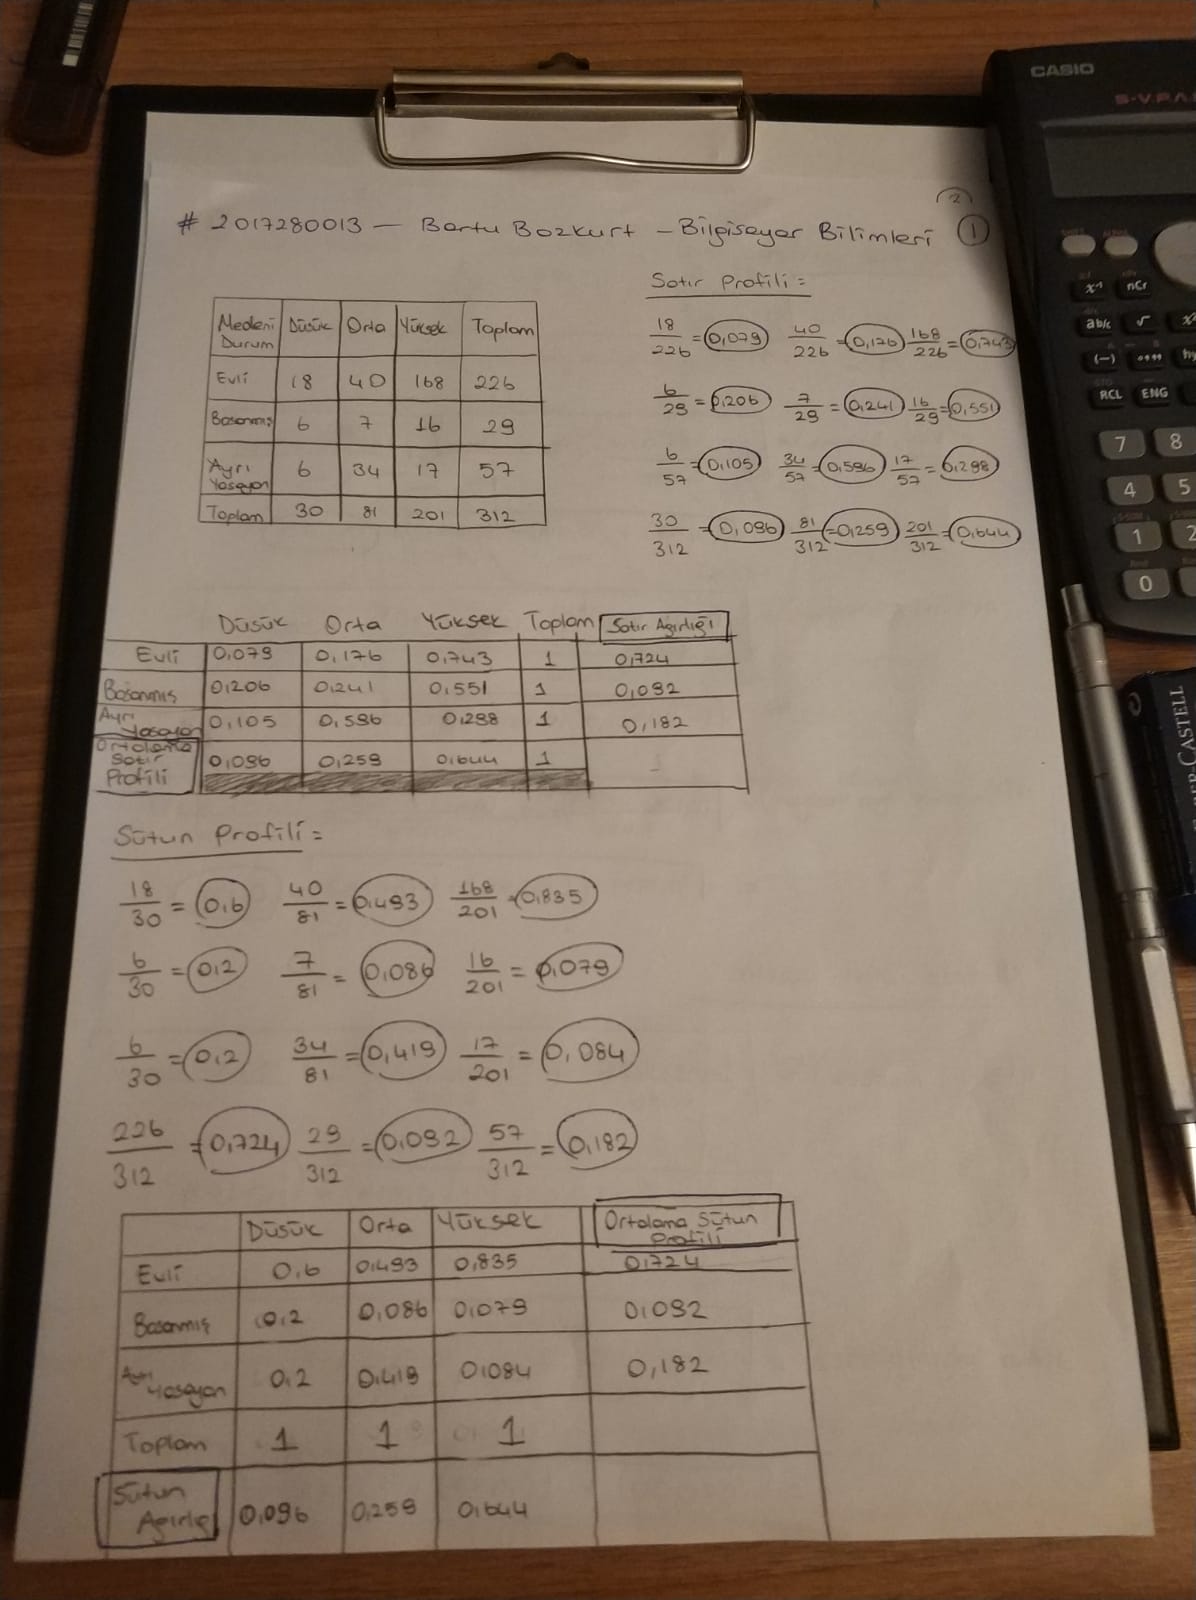 CASIO
S-V.P.A
(2)
# 2017280013 — Bartu Bozkurt – Bilgisayar Bilimleri ①
Satır Profili =
Medeni Durum Düşük Orta Yüksek Toplam
Evli 18 40 168 226
Boşanmış 6 7 16 29
Ayrı Yaşayan 6 34 17 57
Toplam 30 81 201 312
18/226 = 0,079 40/226 = 0,176 168/226 = 0,743
6/29 = 0,206 7/29 = 0,241 16/29 = 0,551
6/57 = 0,105 34/57 = 0,596 17/57 = 0,298
30/312 = 0,096 81/312 = 0,259 201/312 = 0,644
Düşük Orta Yüksek Toplam Satır Ağırlığı
Evli 0,079 0,176 0,743 1 0,724
Boşanmış 0,206 0,241 0,551 1 0,092
Ayrı Yaşayan 0,105 0,596 0,298 1 0,182
Ortalama Satır Profili 0,096 0,259 0,644 1
Sütun Profili =
18/30 = 0,6 40/81 = 0,493 168/201 = 0,835
6/30 = 0,2 7/81 = 0,086 16/201 = 0,079
6/30 = 0,2 34/81 = 0,419 17/201 = 0,084
226/312 = 0,724 29/312 = 0,092 57/312 = 0,182
Düşük Orta Yüksek Ortalama Sütun Profili
Evli 0,6 0,493 0,835 0,724
Boşanmış 0,2 0,086 0,079 0,092
Ayrı Yaşayan 0,2 0,419 0,084 0,182
Toplam 1 1 1
Sütun Ağırlığı 0,096 0,259 0,644
SHIFT ALPHA
x⁻¹ nCr
ab/c √
(−) °'"
RCL ENG
7 8
4 5
1 2
0
CASTELL